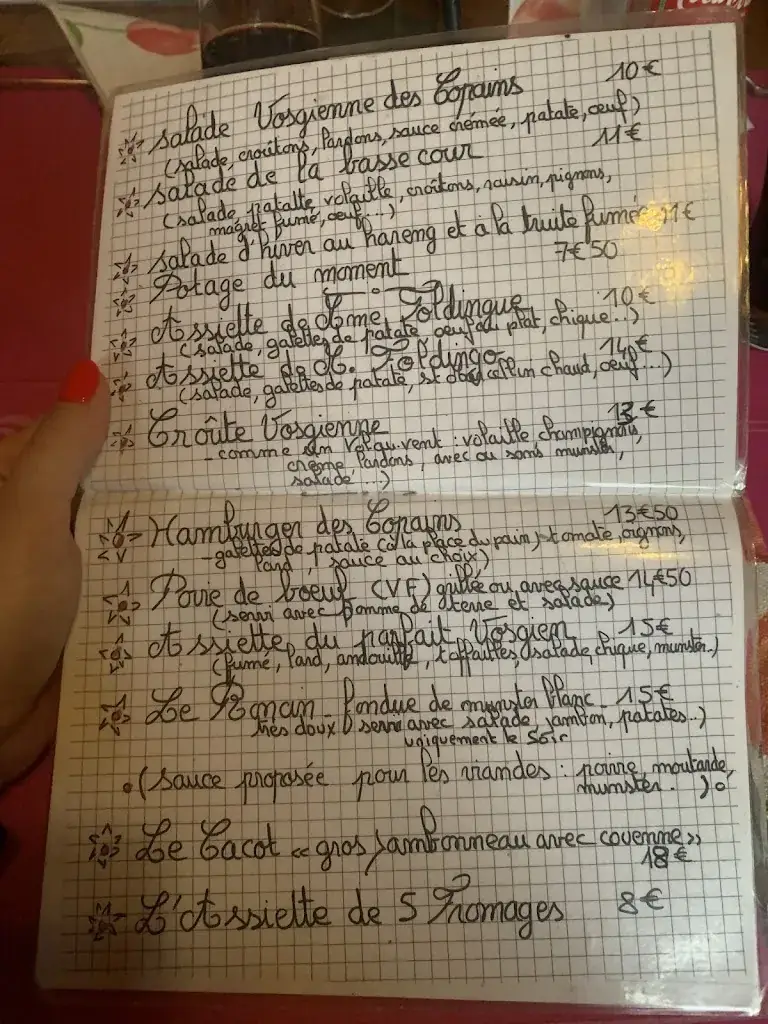 salade Vosgienne des Copains 10€
(salade, croûtons, lardons, sauce crémée, patate, oeuf)
salade de la basse cour 11€
(salade, patatte, volaille, croûtons, raisin, pignons,
magret fumé, oeuf...)
salade d'hiver au hareng et à la truite fumée 11€
Potage du moment 7€50
Assiette de Mme Foldingue 10€
(salade, galettes de patate, oeuf au plat, chique...)
Assiette de M. Foldingo 14€
(salade, galettes de patate, chaud, oeuf...)
Croûte Vosgienne 13€
- comme un vol au vent : volaille, champignons,
crème, lardons, avec ou sans munster,
salade ...)
Hamburger des Copains 13€50
- galettes de patate (à la place du pain) tomate, oignons,
lard, sauce au choix)
de boeuf (VF) grillée ou avec sauce 14€50
(servi avec pomme de terre et salade)
Assiette du parfait Vosgien 15€
(fumé, lard, andouille, salade, chique, munster..)
Le Romain - fondue de munster blanc - 15€
très doux servi avec salade, jambon, patates..)
uniquement le soir
(sauce proposée pour les viandes : poivre, moutarde,
munster. )
Le Cacot « gros jambonneau avec couenne »
18€
L'Assiette de 5 Fromages 8€